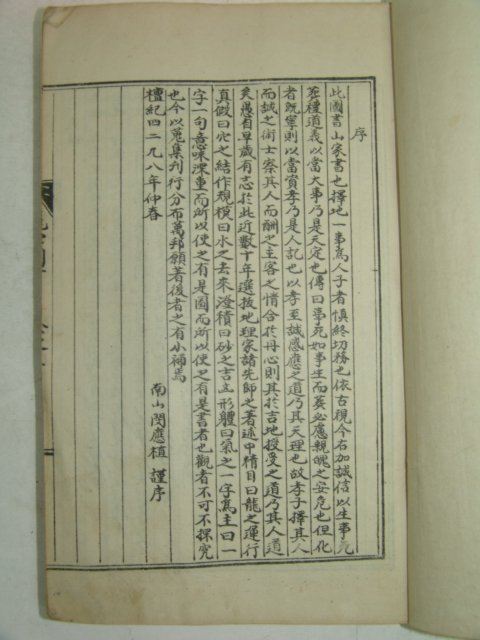 序
此國書山家書也擇地一事爲人子者愼終切務也依古視今名加誠信以生事死
葬禮道義以當大事乃是天定也傳曰事死如事生而葬必慮親魄之安危也但化
者旣寧則以當賞孝乃是人記也以孝至誠感應之道乃其天理也故孝子擇其人
而誠之術士察其人而酬之主客之情合於丹心則其於吉地授受之道乃其人道
矣愚自早歲有志於此近數十年選拔地理家諸先師之著述中精目曰龍之運行
眞假曰穴之結作規模曰水之去來澄積曰砂之吉 形體曰氣之一字爲主曰一
字一句意味深重而所以使之有是圖而所以使之有是書者也觀者不可不探究
也今以蒐集刋行分布萬邦願著後者之有小補焉
檀紀四二九八年仲春
南山閔應植 謹序